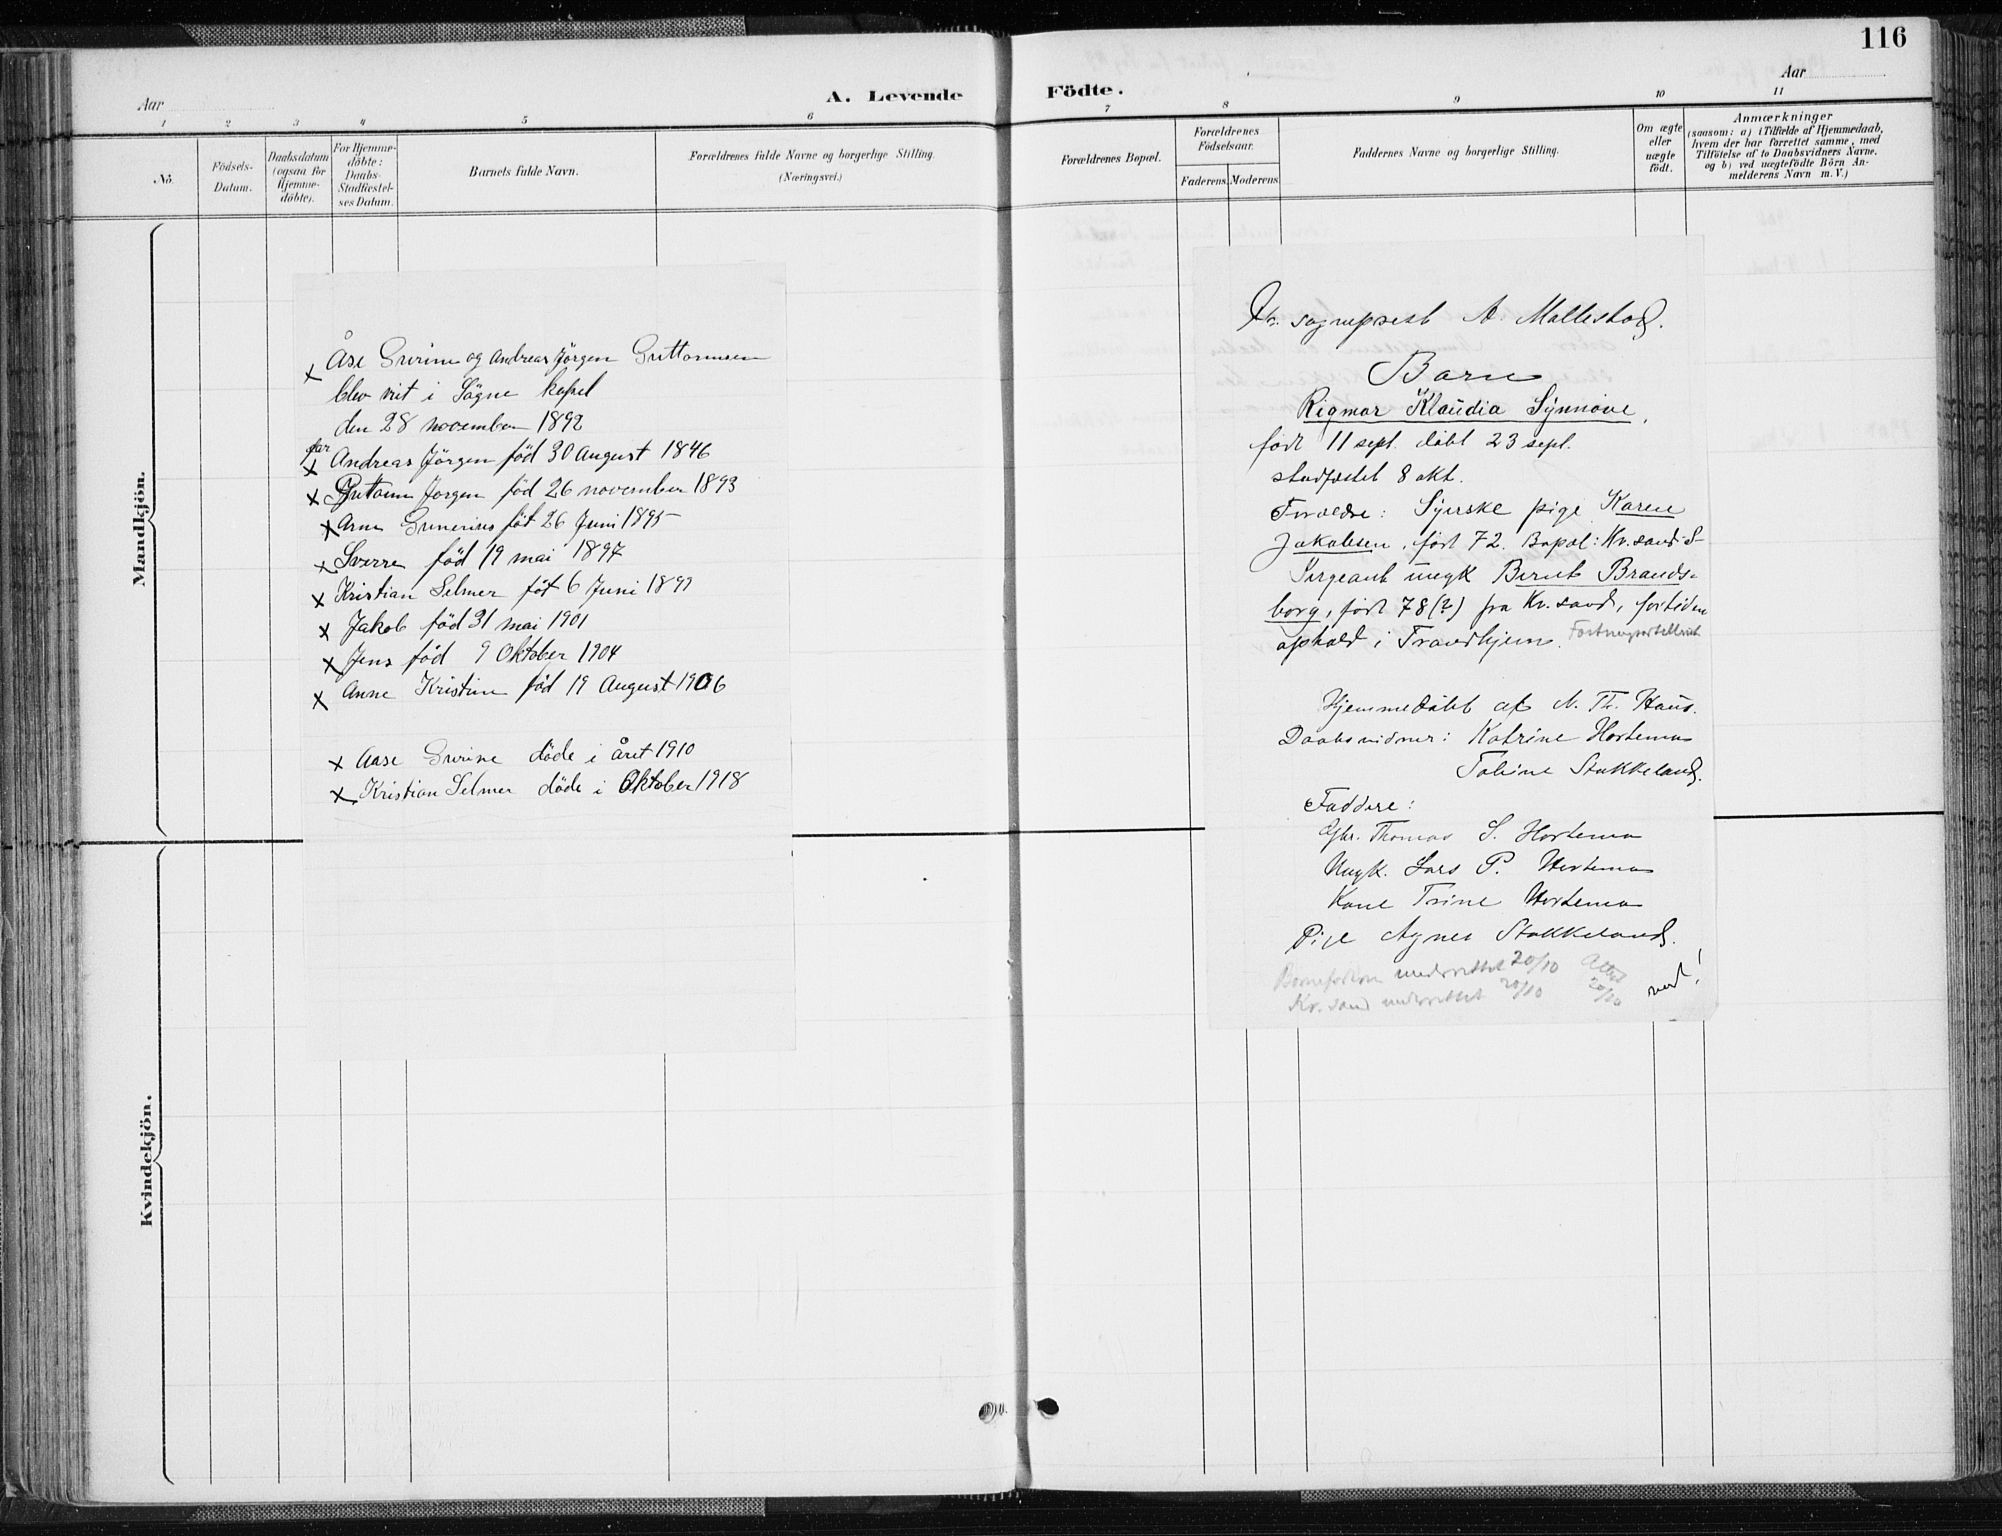 116
Aar
A. Levende
Födte.
Aar
1 2 3 4 5 6
7 8 9 10 11
No.
Födsels-
Datum.
Daabsdatum
(ogsaa for
Hjemme-
döbte).
For Hjemme-
döbte:
Daabs-
Stadfæstel-
ses Datum.
Barnets fulde Navn.
Forældrenes fulde Navne og borgerlige Stilling.
(Næringsvei.)
Forældrenes Bopæl.
Forældrenes
Födselsaar.
Faderens.
Moderens.
Faddernes Navne og borgerlige Stilling.
Om ægte
eller
uægte
födt.
Anmærkninger
(saasom: a) i Tilfælde af Hjemmedaab,
hvem der har forrettet samme, med
Tilföielse af to Daabsvidners Navne.
og b) ved uægtefödte Börn An-
melderens Navn m. V.)
Mandkjön.
Kvindekjön.
x Åse Gurine og Andreas Jörgen Guttormsen
blev viet i Sögne kapel
den 28 november 1892
far
x Andreas Jörgen föd 30 August 1846
x Guttorm Jorgen föd 26 november 1893
x Arne Gunerius föt 26 Juni 1895
x Sverre föd 19 mai 1897
x Kristian Selmer föt 6 Juni 1899
x Jakob föd 31 mai 1901
x Jens föd 9 Oktober 1904
x Anne Kristine föd 19 August 1906
x Aase Gurine döde i året 1910
x Kristian Selmer döde i Oktober 1918
Hr. sogneprest A. Mallestad.
Barn
Rigmor Klaudia Synnöve,
født 11 sept. døbt 23 sept.
stadfæstet 8 okt.
Forældre: Syerske pige Karen
Jakobsen, født 72. Bopæl: Kr.sand S
Sergeant ungk Bernt Brands-
borg, født 78(?) fra Kr.sand, fortiden
ophold i Trondhjem.
Hjemmedøbt af N. Th. Haus.
Daabsvidner: Katrine Hortemo
Tobine Stokkeland.
Faddere:
Gbr. Thomas S. Hortemo
Ungk. Lars P. Hortemo
Kone Trine Hortemo
Pige Agnes Stokkeland.
underrettet 20/10 Attest
20/10
Kr.sand underrettet 20/10
vend!